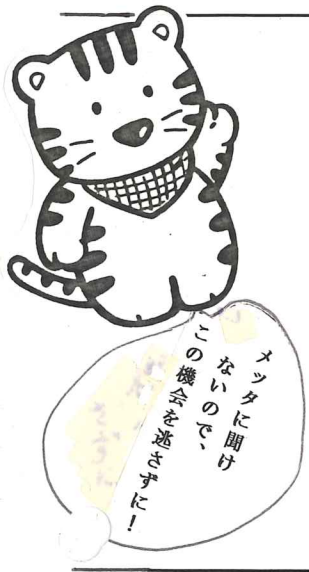 メッタに聞け
ないので、
この機会を逃さずに！